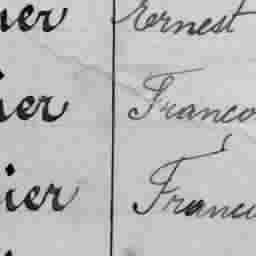 ier Ernest
ier Franco
ier Franc